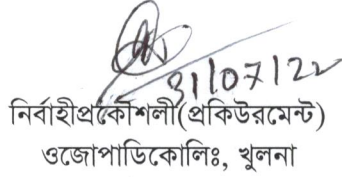 31/07/22
নির্বাহীপ্রকৌশলী(প্রকিউরমেন্ট)
ওজোপাডিকোলিঃ, খুলনা